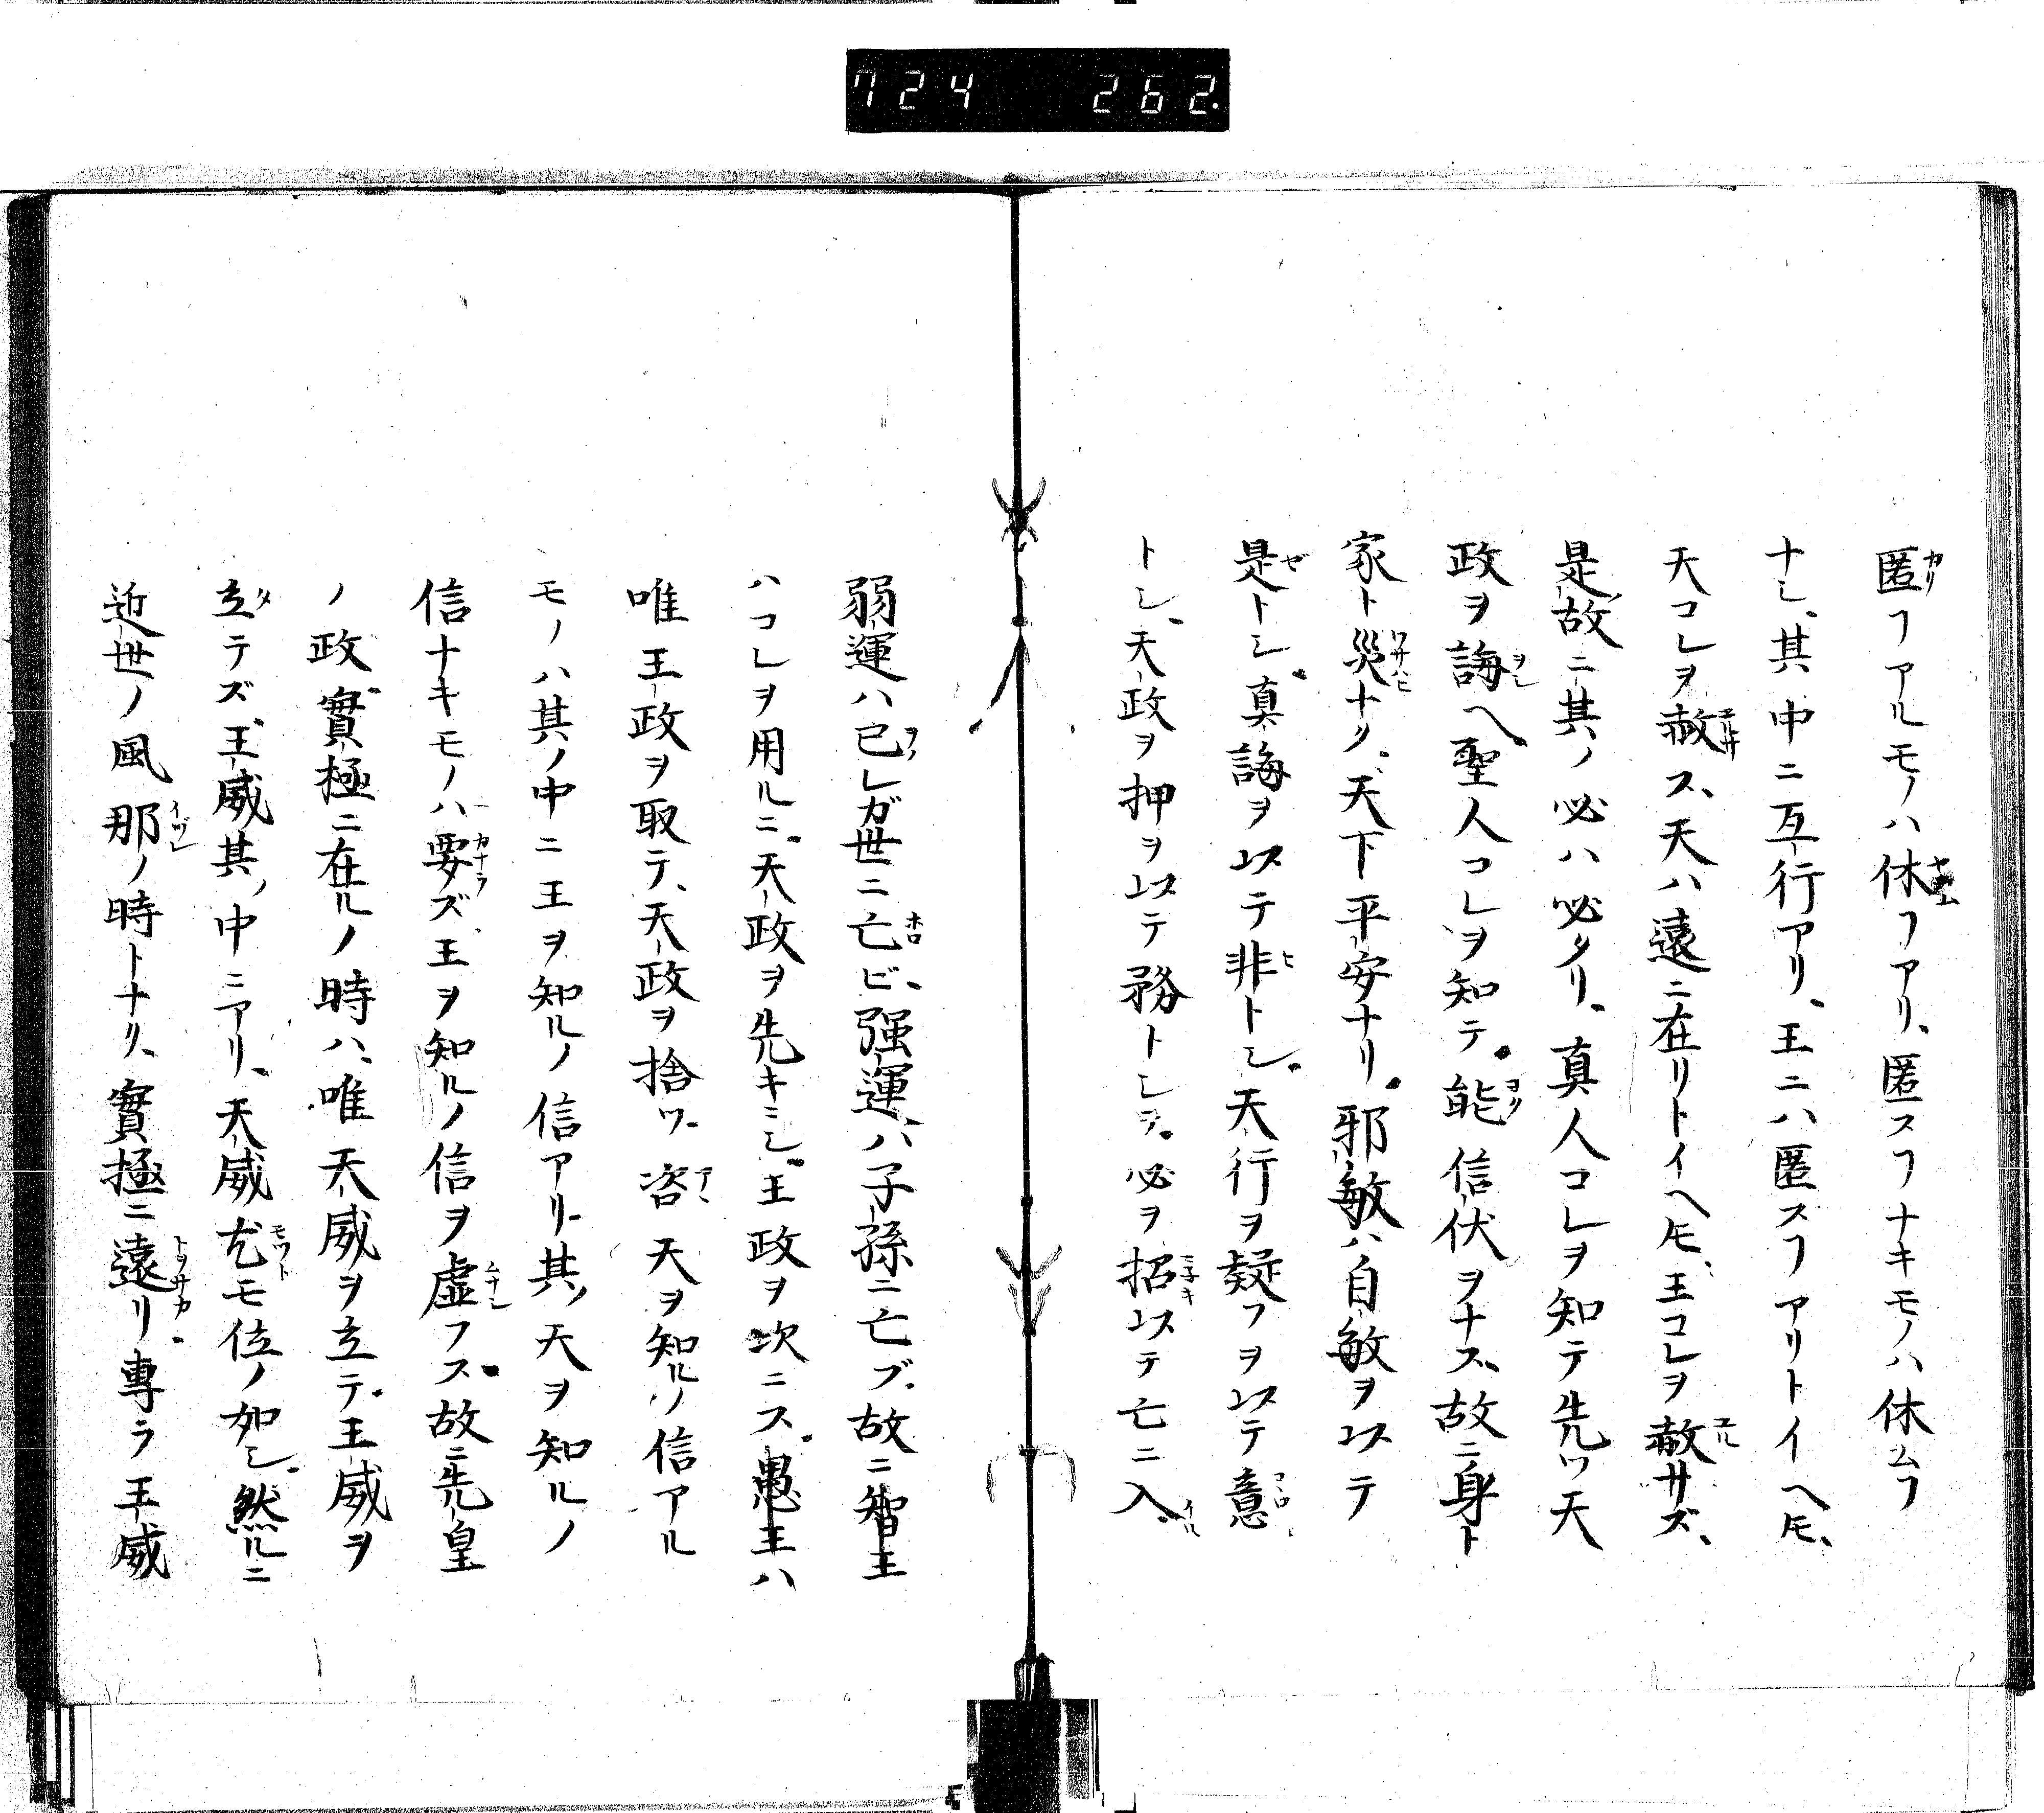 724 262.
匿フアルモノハ休フアリ、匿スフナキモノハ休ムフ
ナシ、其中ニ互行アリ、王ニハ匿スフアリトイヘ𪜈、
天コレヲ赦ス、天ハ遠ニ在リトイヘ𪜈、王コレヲ赦サズ、
是故ニ其ノ必ハ必タリ、真人コレヲ知テ先ツ天
政ヲ誨ヘ、聖人コレヲ知テ、能信伏ヲナス、故ニ身ト
家ト災ナク、天下平安ナリ、邪敏ハ自敏ヲ以テ
是トシ、真誨ヲ以テ非トシ、天行ヲ疑フヲ以テ意
トシ、天政ヲ押ヲ以テ務トシテ、必ヲ招以テ亡ニ入、
弱運ハ己レガ世ニ亡ビ、强運ハ子孫ニ亡ブ、故ニ智王
ハコレヲ用ルニ、天政ヲ先キニシ、王政ヲ次ニス、愚王ハ
唯王政ヲ取テ、天政ヲ捨ツ、咨天ヲ知ルノ信アル
モノハ其ノ中ニ王ヲ知ルノ信アリ、其ノ天ヲ知ルノ
信ナキモノハ要ズ、王ヲ知ルノ信ヲ虚フス、故ニ先皇
ノ政、實極ニ在ルノ時ハ、唯天威ヲ立テ、王威ヲ
立テズ、王威其ノ中ニアリ、天威尤モ位ノ如シ、然ルニ
近世ノ風那ノ時トナリ、實極ニ遠リ專ラ王威